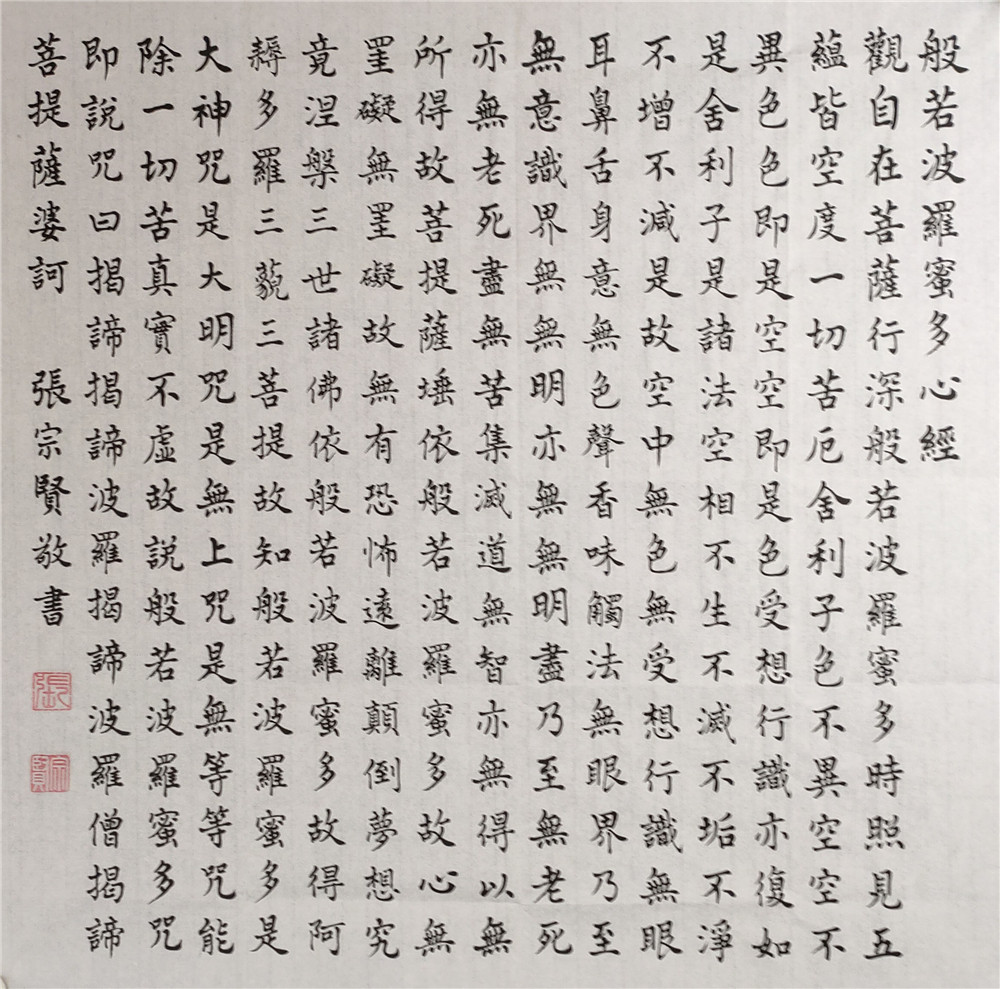 般若波羅蜜多心經
觀自在菩薩行深般若波羅蜜多時照見五
蘊皆空度一切苦厄舍利子色不異空空不
異色色即是空空即是色受想行識亦復如
是舍利子是諸法空相不生不滅不垢不淨
不增不減是故空中無色無受想行識無眼
耳鼻舌身意無色聲香味觸法無眼界乃至
無意識界無無明亦無無明盡乃至無老死
亦無老死盡無苦集滅道無智亦無得以無
所得故菩提薩埵依般若波羅蜜多故心無
罣礙無罣礙故無有恐怖遠離顛倒夢想究
竟涅槃三世諸佛依般若波羅蜜多故得阿
耨多羅三藐三菩提故知般若波羅蜜多是
大神咒是大明咒是無上咒是無等等咒能
除一切苦真實不虛故說般若波羅蜜多咒
即說咒曰揭諦揭諦波羅揭諦波羅僧揭諦
菩提薩婆訶 張宗賢敬書
張
宗賢